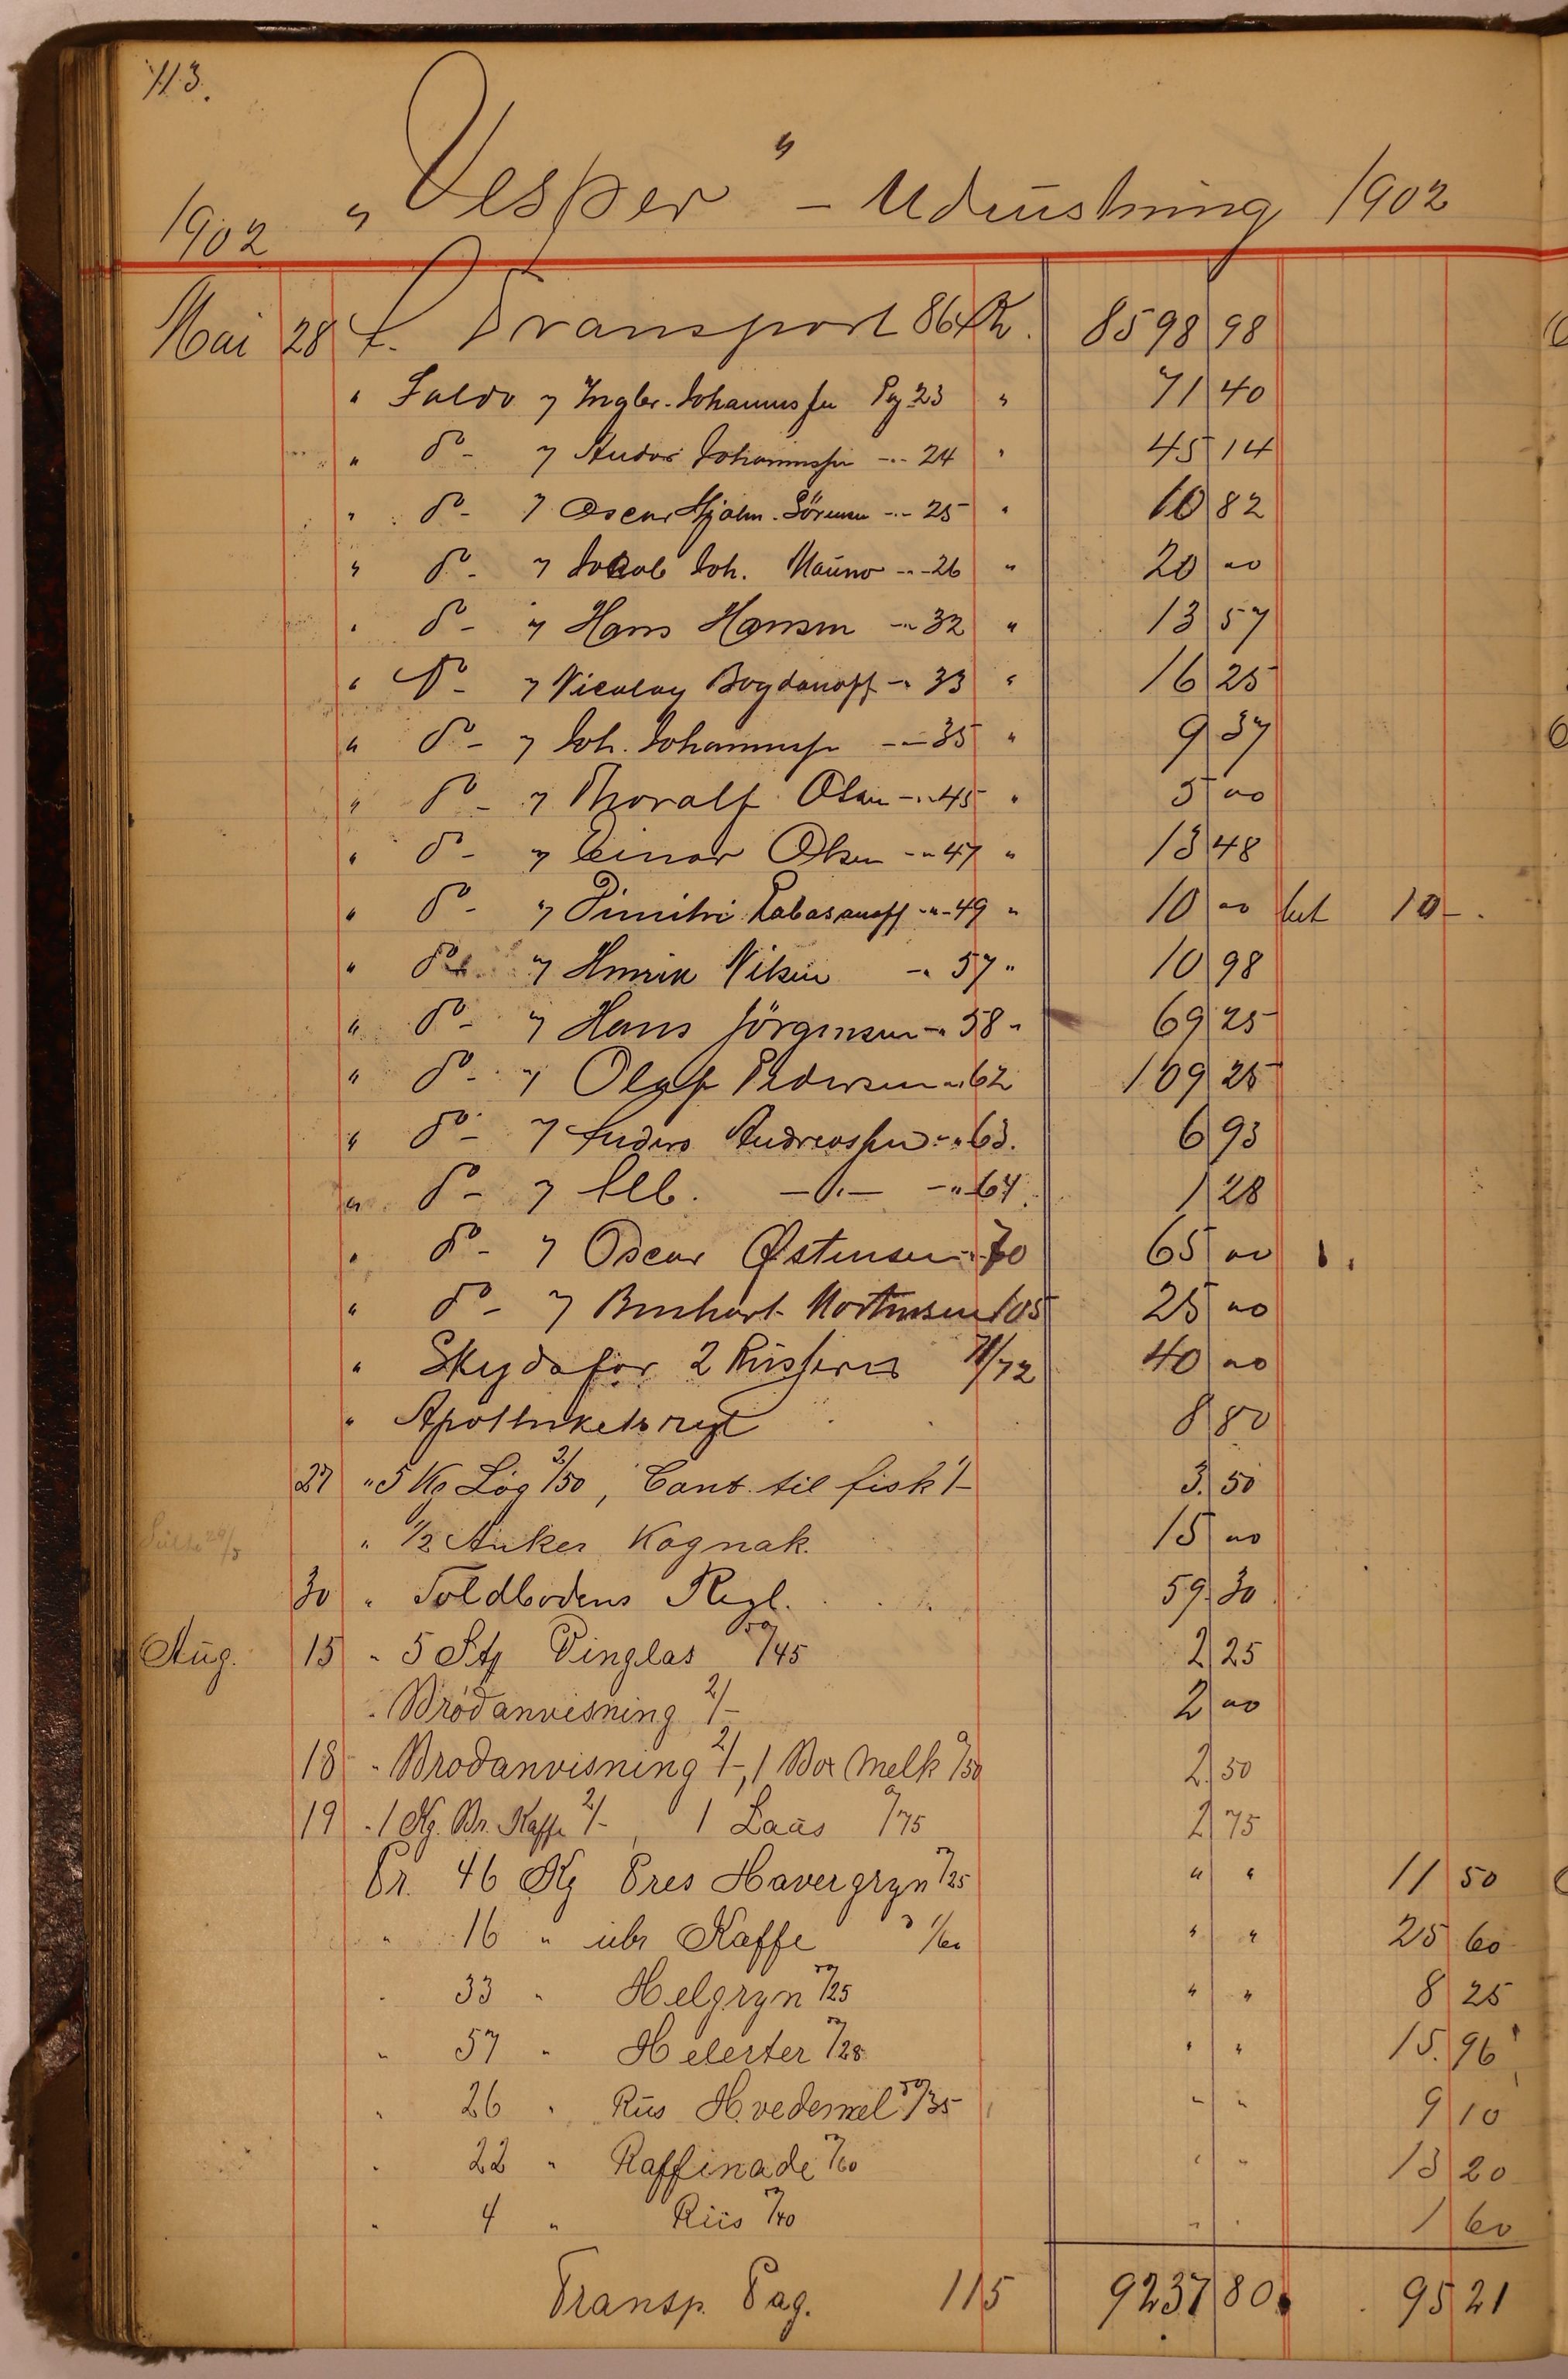 113.
"Vesper" – Udrüstning 1902
1902
Mai 28 t. Transport 86 Kr. 8598 98
" Saldo 7 Ingbr. Johannssen Pg 23 " 71 40
" do - 7 Andor Johannssen -"- 24 " 45 14
" do - 7 Oscar Hjalm. Sörensen -"- 25 " 10 82
" do - 7 Jokob Joh. Mauno -"- 26 " 20 00
" do - 7 Hans Hansen -"- 32 " 13 57
" do - 7 Nicolay Bogdanoff -" 33 " 16 25
" do - 7 Joh. Johannssen -"- 35 " 9 37
" do - 7 Thoralf Olsen -"- 45 " 5 00
" do - 7 Einar Olsen -"- 47 " 13 48
" do - 7 Dimitri -"- 49 " 10 00 10 -.
" do 7 Henrik Nilsen -" 57 " 10 98
" do - 7 Hans Jörgensen -" 58 " 69 25
" do - 7 Olaf Pedersen -" 62 109 25
" do - 7 Anders Andreassen -" 63. 6 93
" do - 7 Alb. -"- -" 64. 1 28
" do - 7 Oscar Østensen -" 70 65 00
" do - 7 Bernhart Mortensen 105 25 00
" Skyds for 2 Russere 71/72 40 00
" Apothekets regl 8 80
27 " 5 Kg Lög 2/50, Cant. til fisk 1/- 3. 50
" 1/2 Anker Kognak. 15 00
30 " Toldbodens Regl. 59. 30
Aug. 15 " 5 Stg Pinglas 7/45 2 25
" Brödanvisning 2/- 2 00
18 " Brodanvisning 2/-, 1 Box Melk 0/50 2. 50
19 " 1 Kg. Br. Kaffe 2/-, 1 Laas 0/75 2 75
Cr. 46 Kg Pres Havergryn 7/25 " " 11 50
" 16 " ubr Kaffe 7 1/60 " " 25 60
" 33 " Helgryn 7/25 " " 8 25
" 57 " Helerter 7/28 " " 15. 96
" 26 " Rüs Hvedemel 7/35 " " 9 10
" 22 " Raffinade 7/60 " " 13 20
" 4 " Riis 7/40 " " 1 60
Transp. Pag. 115 9237 80. 95 21